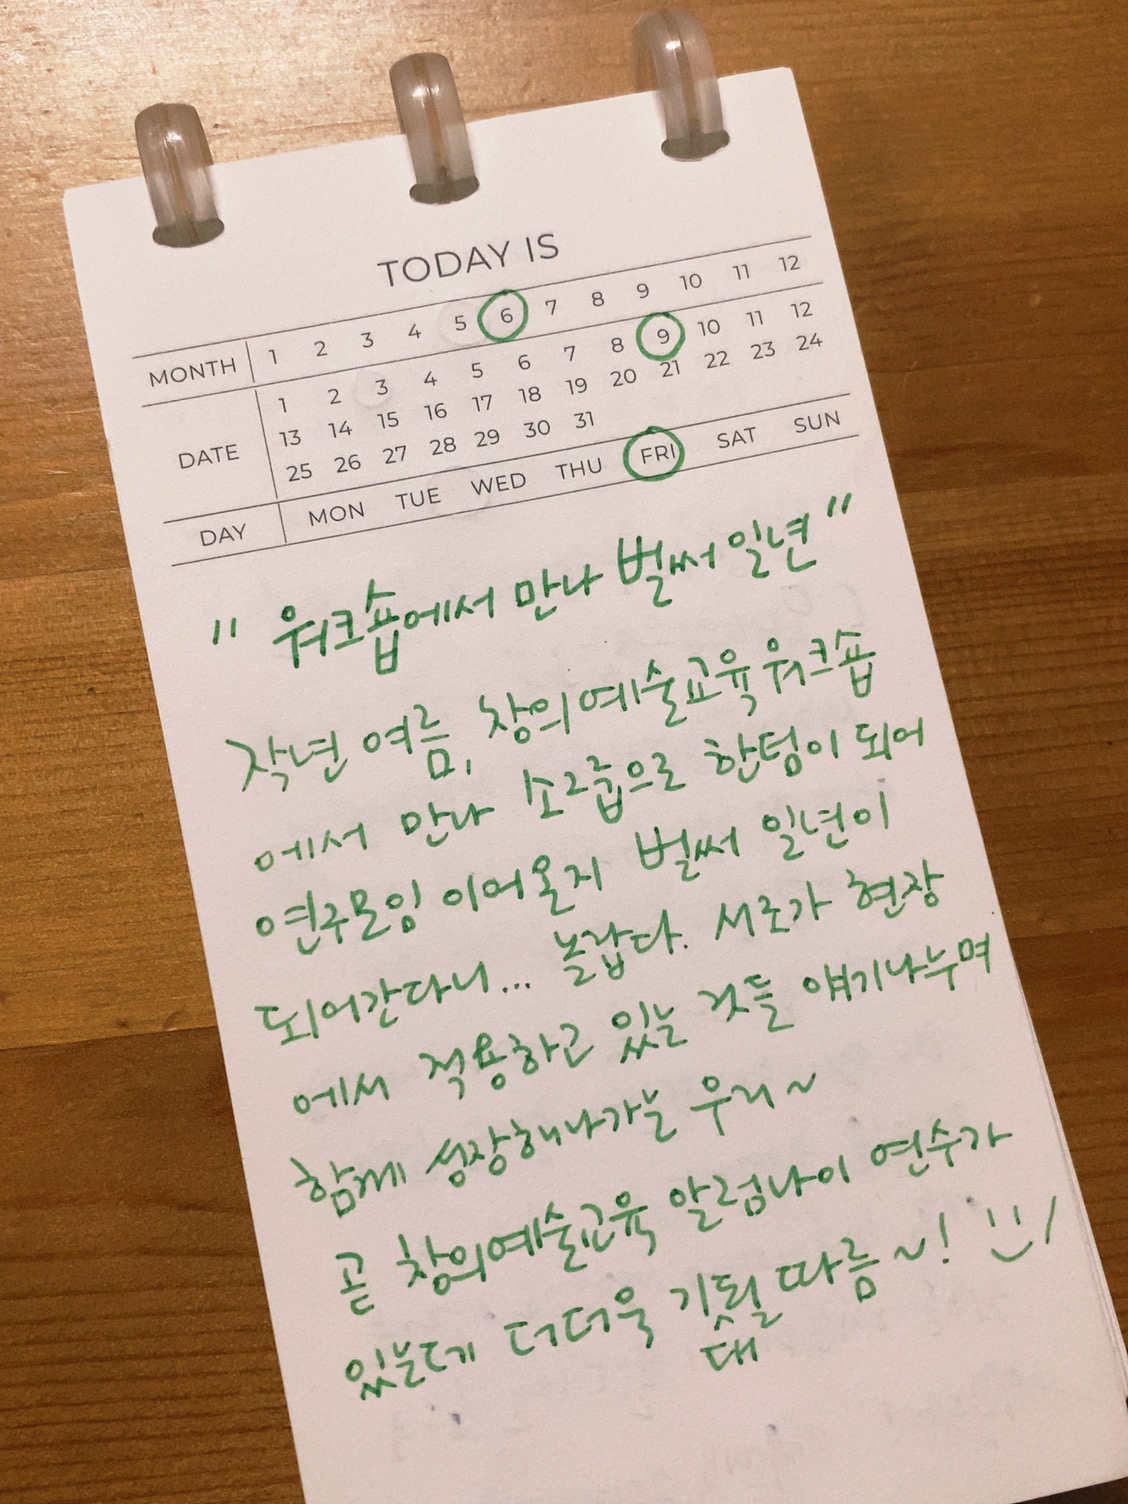 TODAY IS
MONTH 1 2 3 4 5 6 7 8 9 10 11 12
DATE 1 2 3 4 5 6 7 8 9 10 11 12
13 14 15 16 17 18 19 20 21 22 23 24
25 26 27 28 29 30 31
DAY MON TUE WED THU FRI SAT SUN
"워크숍에서 만나 벌써 일년"
작년 여름, 창의예술교육워크숍
에서 만나 소그룹으로 한텀이 되어
연주모임 이어온지 벌써 일년이
되어간다니... 놀랍다. 서로가 현장
에서 적용하고 있는 것들 얘기나누며
함께 성장해나가는 우리~
곧 창의예술교육 알럼나이 연수가
있는데 더더욱 기될 따름~! :)
대